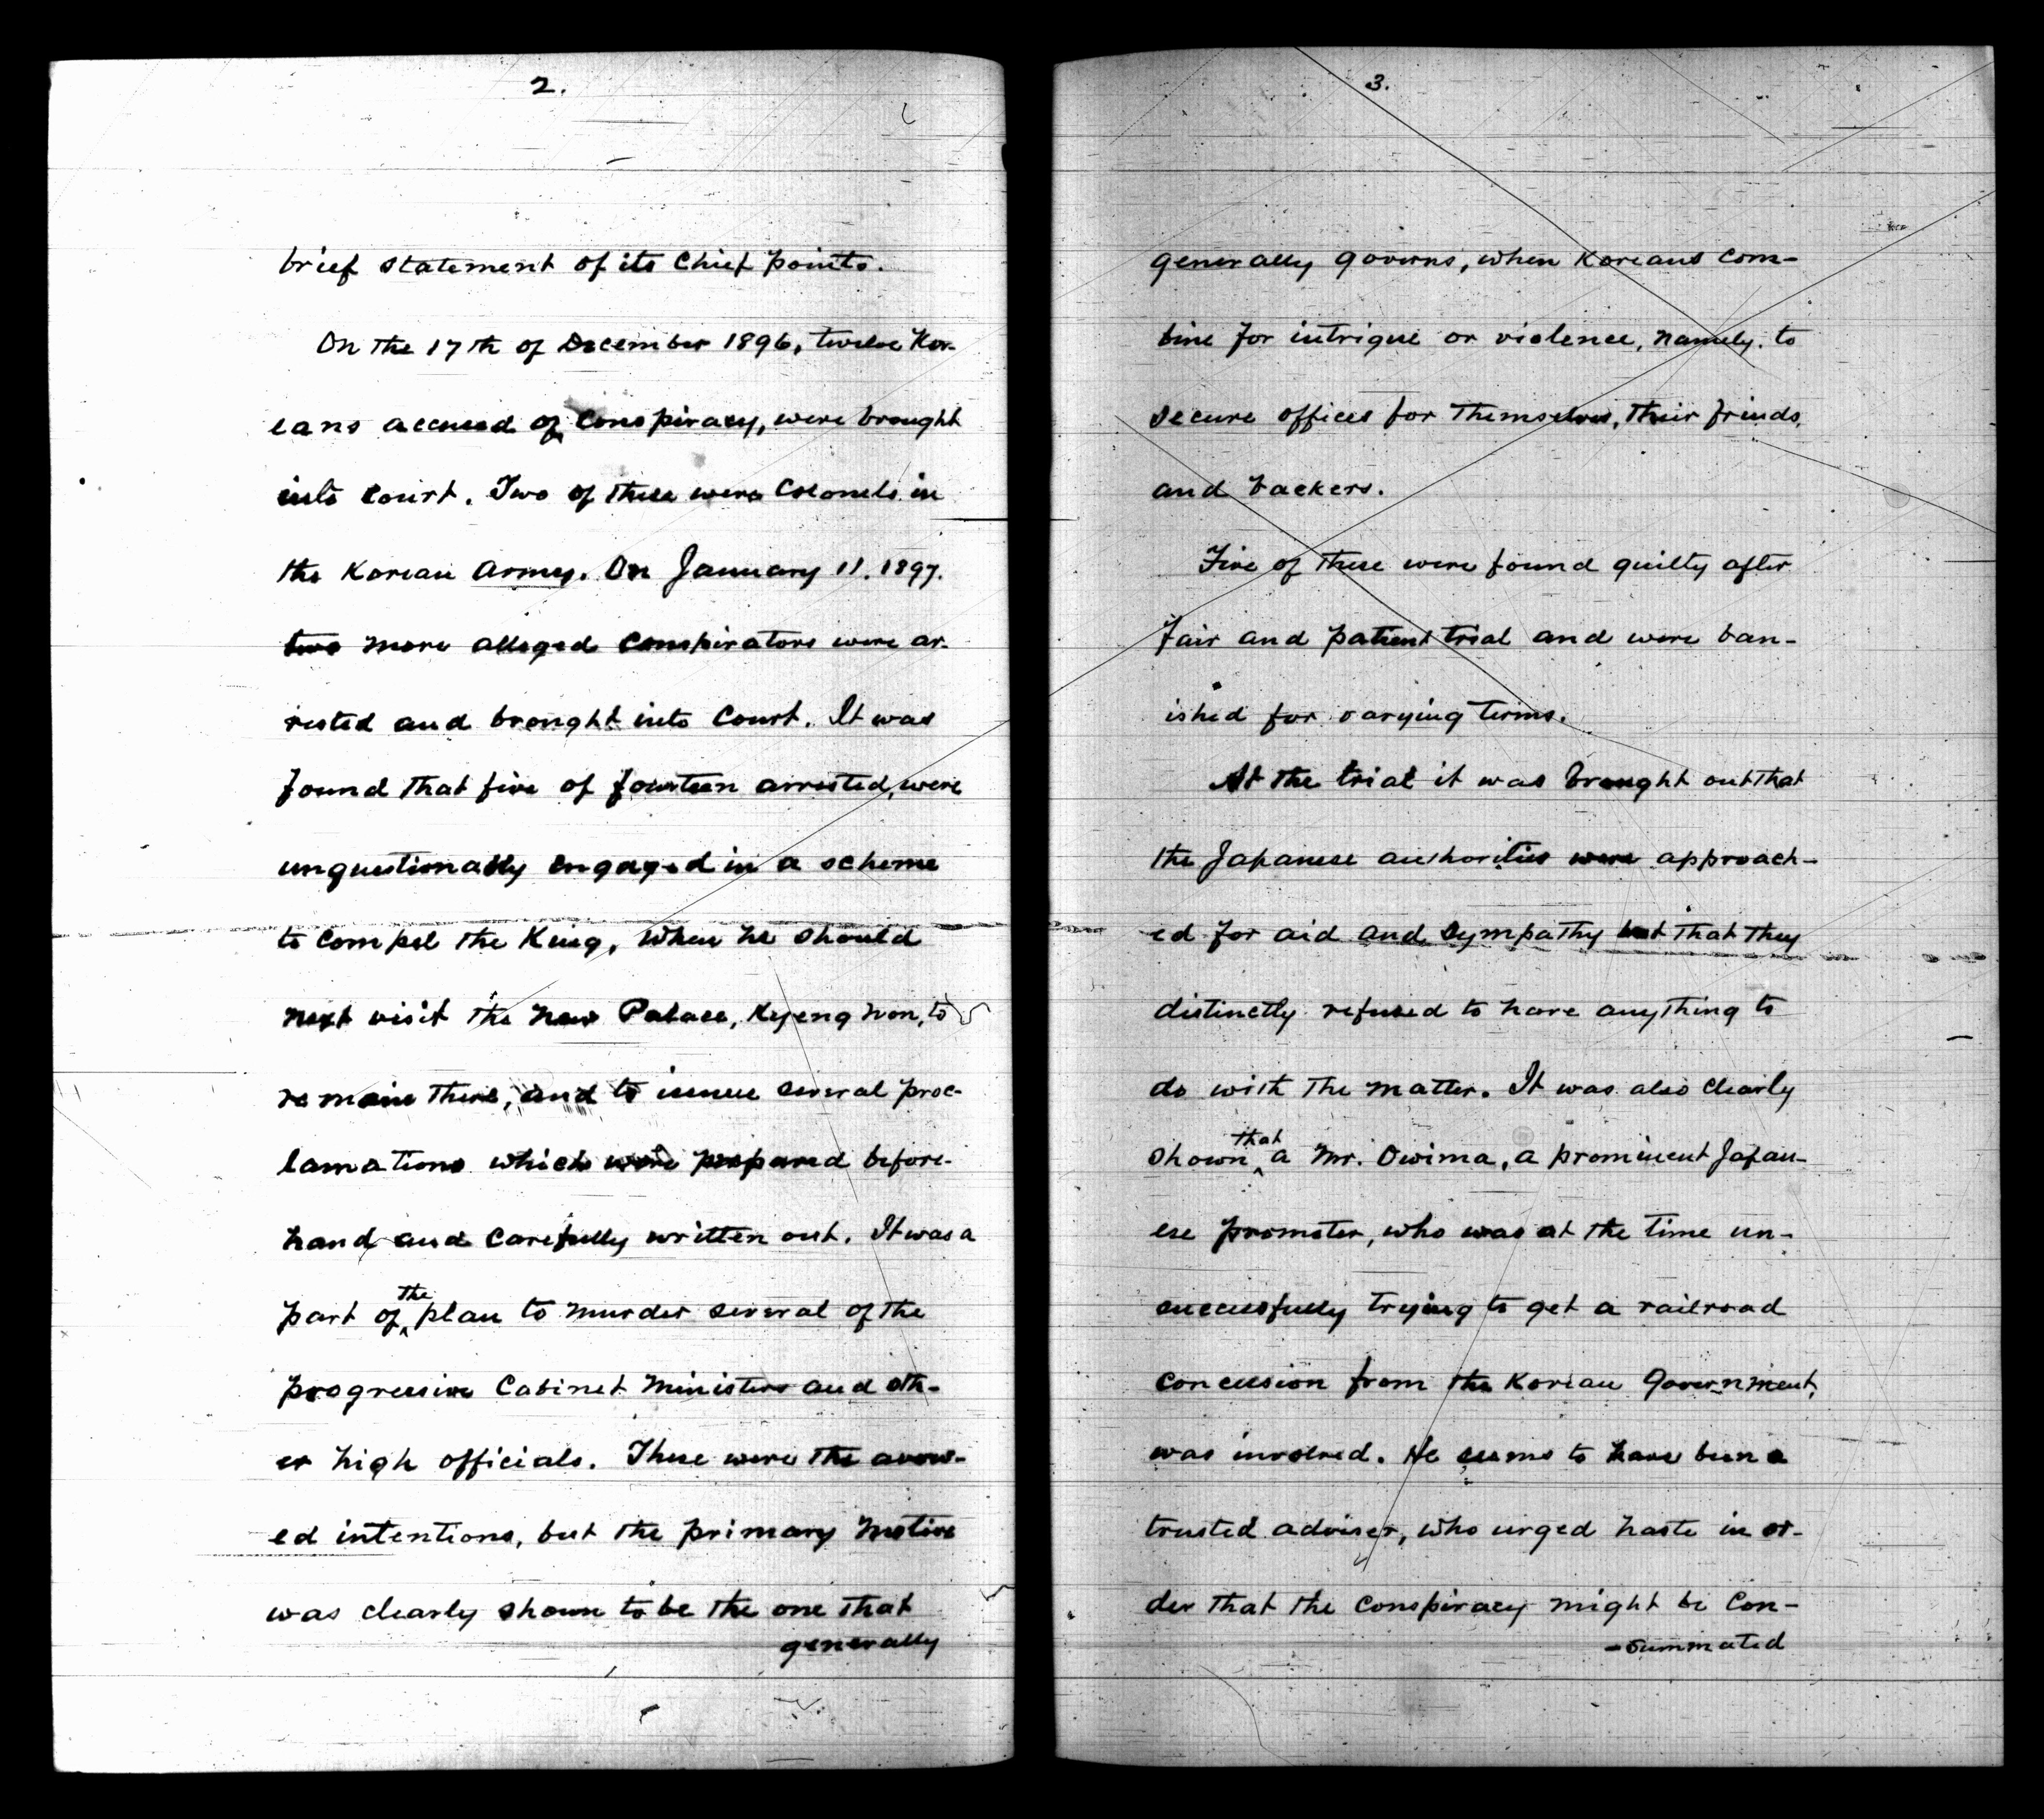 2.
brief statement of its Chief points.
On the 17th of December 1896, twelve Kor-
eans accused of conspiracy, were brought
into court. Two of these were Colonels in
the Korean Army. On January 11. 1897.
two more alleged conspirators were ar-
rested and brought into Court. It was
found that five of fourteen arrested, were
unquestionably engaged in a scheme
to compel the King, when he should
next visit the new Palace, Kyeng Won, to
remain there, and to issue several proc-
lamations which were prepared before-
hand and carefully written out. It was a
part of the plan to murder several of the
progressive Cabinet Ministers and oth-
er high officials. These were the avow-
ed intentions, but the primary motive
was clearly shown to be the one that
generally
3.
generally governs, when Koreans com-
bine for intrigue or violence, namely, to
secure offices for themselves, their friends,
and backers.
Five of these were found guilty after
fair and patient trial and were ban-
ished for varying terms.
At the trial it was brought out that
the Japanese authorities were approach-
ed for aid and sympathy but that they
distinctly refused to have anything to
do with the matter. It was also clearly
shown that a Mr. Owima, a prominent Japan-
ese promoter, who was at the time un-
successfully trying to get a railroad
concession from the Korean Government,
was involved. He seems to have been a
trusted adviser, who urged haste in or-
der that the conspiracy might be Con-
-summated